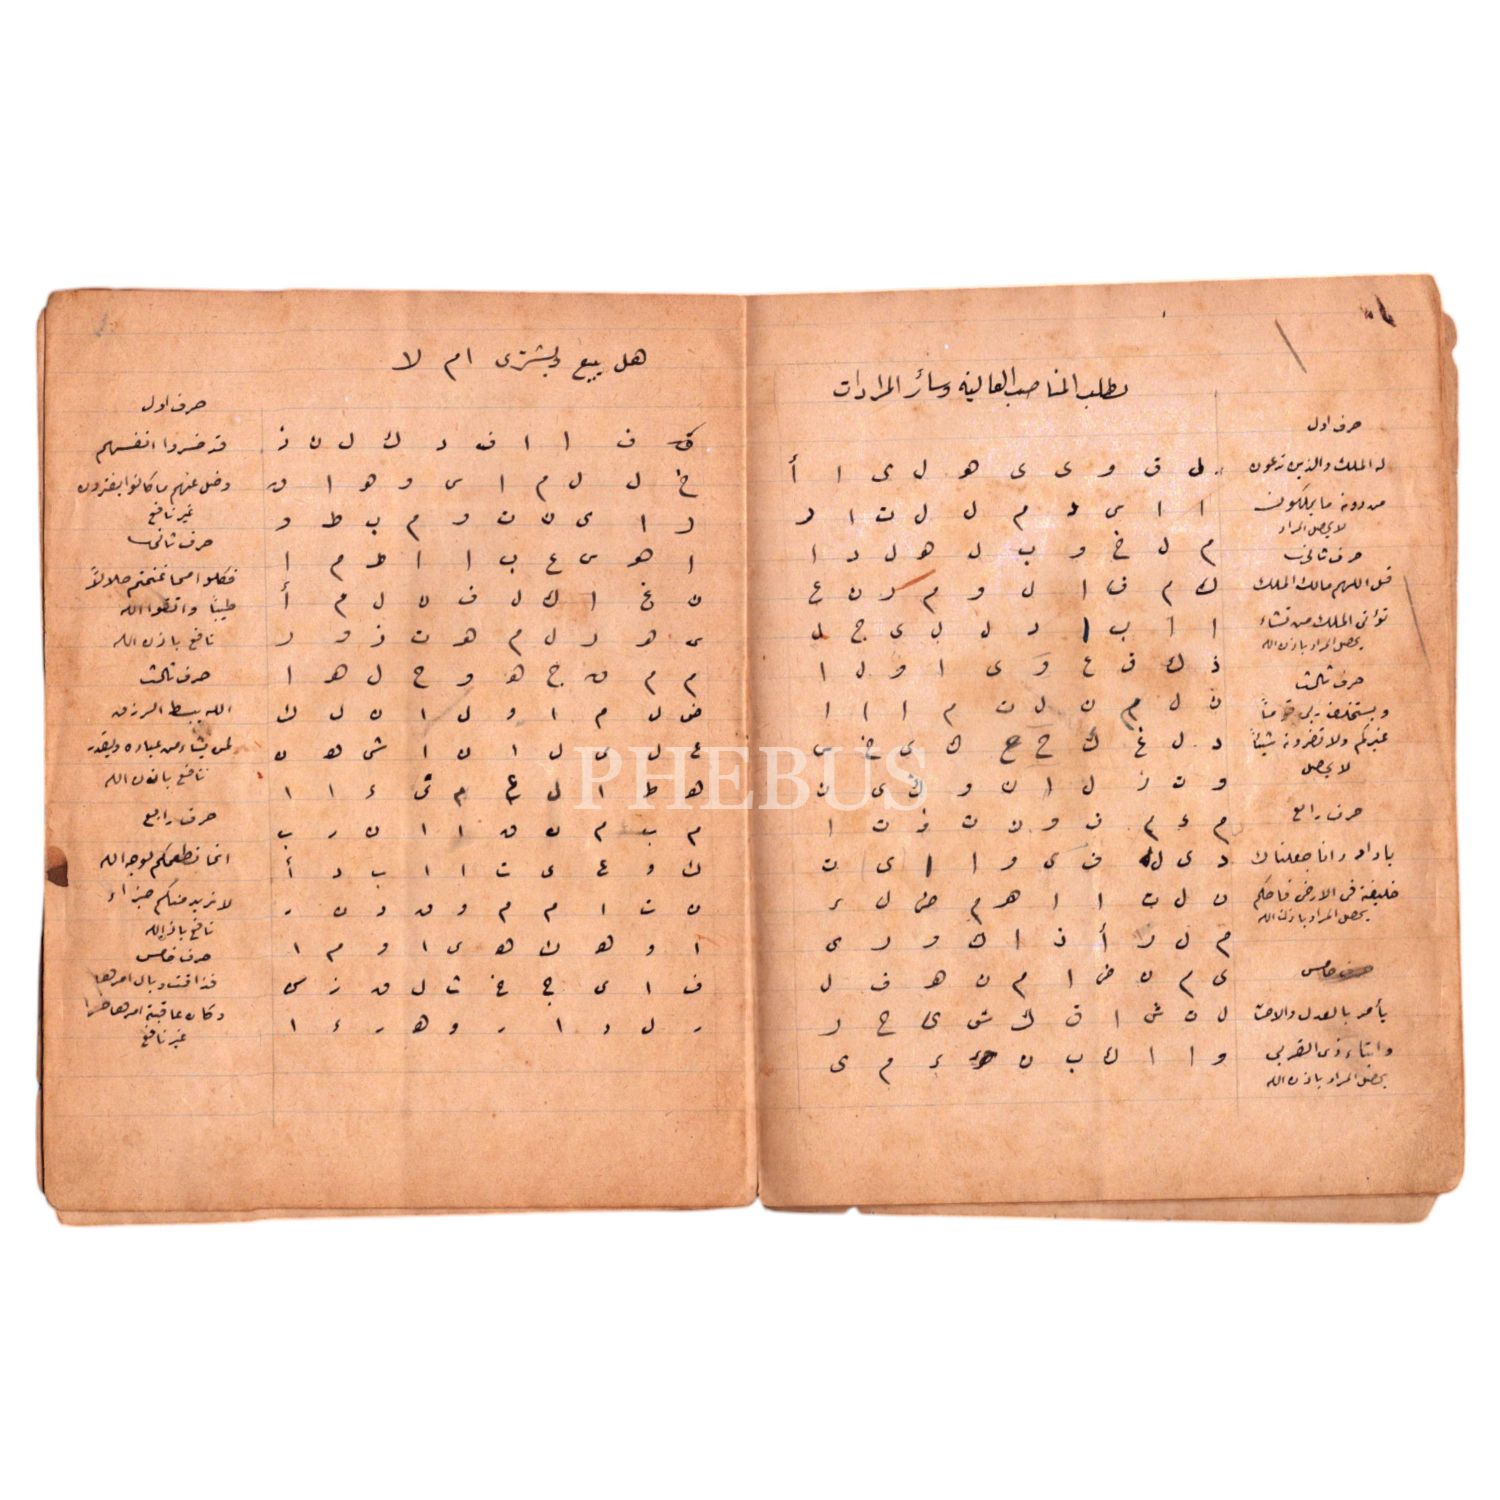 لطلب المناصب العاليه وسائر المرادات
حرف اول
له الملك والذين تدعون
من دونه ما يملكون
لا يحصل المراد
حرف ثانى
قل اللهم مالك الملك
تؤتى الملك من تشاء
يحصل المراد باذن الله
حرف ثالث
ويستخلف ربى قوماً
غيركم ولا تضرونه شيئاً
لا يحصل
حرف رابع
ياداود انا جعلناك
خليفة فى الارض فاحكم
يحصل المراد باذن الله
حرف خامس
يأمر بالعدل والاحسان
وايتاء ذى القربى
يحصل المراد باذن الله
ل ق و ى ى هو ل ى ا أ
ا ا س د م ل ل ت ا ر
م ل خ و ب ل هو ل د ا
ك م ف ا ل و م ر ن ع
ا ا ب ا د ل ل ى ج ل
ذ ك ف ع و ى ا و ل ا
ن ل م ن ل ت م ا ا ا
د ل غ ك ح ح ك ى خ س
و ت ز ل ا ن و ش ى ن
م ء م ف و ن ت ذ ت ا
د ى ل ف ى و ا ا ى ت
ن ل ت ا ا هر م ض ل ر
م ل ر أ ذ ا ك و ر ى
ى م ن ض ا م ن هو ف ل
ل ن ش ا ق ك ش ى ح ر
و ا ا ك ب ن ء م ى
هل يبيع ويشترى ام لا
حرف اول
قد خسروا انفسهم
وضل عنهم ما كانوا يفترون
غير نافع
حرف ثانى
فكلوا مما غنمتم حلالاً
طيبا واتقوا الله
نافع باذن الله
حرف ثالث
الله يبسط الرزق
لمن يشاء من عباده ويقدر
نافع باذن الله
حرف رابع
انما نطعمكم لوجه الله
لا نريد منكم جزاء
نافع باذن الله
حرف خامس
فذاقت وبال امرها
وكان عاقبة امرها خسرا
غير نافع
ق ف ا ا ف د ك ل ن ذ
خ ل ل م ا س و هو ا ق
ر ا ى ن ت و م ب ط و
ا هو س ع ب ا ا ط م ا
ن غ ا ك ل ف ن ل م أ
ى هو ر ل م هو ت ز و ر
م م ق ج هو و ح ل هر ا
ض ل م ا و ل ا ن ل ك
ع ل ى ل ا ن ا ش هو ن
هو ط ا ل ع م ى ء ا ا
م ب م ن ق ا ا ن ر ب
ك و ع ى ت ا ا ب د أ
ن ت ا م م و ق د ن ر
ا و هو ن هو ى ا و م ا
ف ا ى ج خ ث ل ق ز س
ر ل د ا ر و هو ر ء ا
PHEBUS